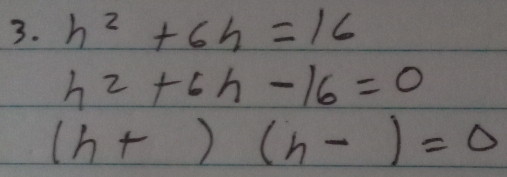 3. h² + 6h = 16
h² + 6h - 16 = 0
(h +   ) (h -   ) = 0